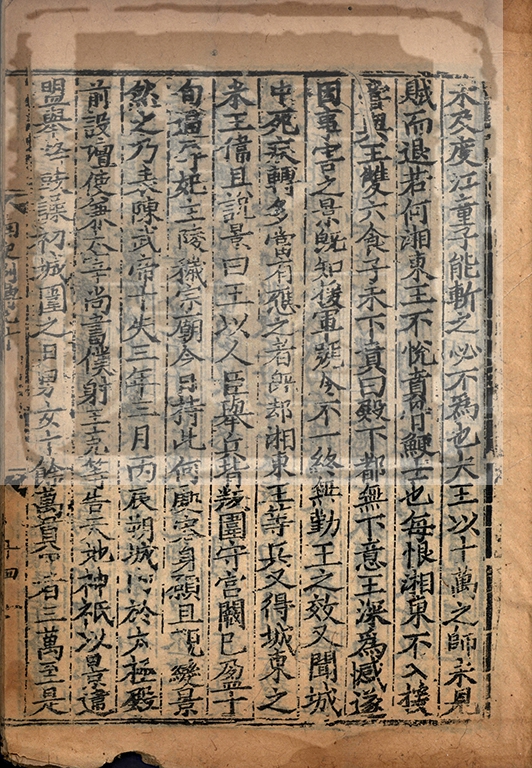 未及度江童子能斬之必不為也大王以十萬之師未見
賊而退若何湘東王不悅賁骨鯁士也每恨湘東不入援
嘗與王雙六食子未下賁曰殿下都無下意王深為憾遂
因事害之景既知援軍號令不一終無勤王之效又聞城
中死疾轉多當有應之者既却湘東王等兵又得城東之
米王偉且說景曰王以人臣舉兵背叛圍守宮闕已盈十
旬逼辱妃主陵穢宗廟今日持此何處容身願且觀變景
然之乃表陳武帝十失三年三月丙辰朔城內於太極殿
前設壇使兼太宰尚書僕射王克等告天地神祇以景違
盟舉烽鼓譟初城圍之日男女十餘萬貫甲者三萬至是